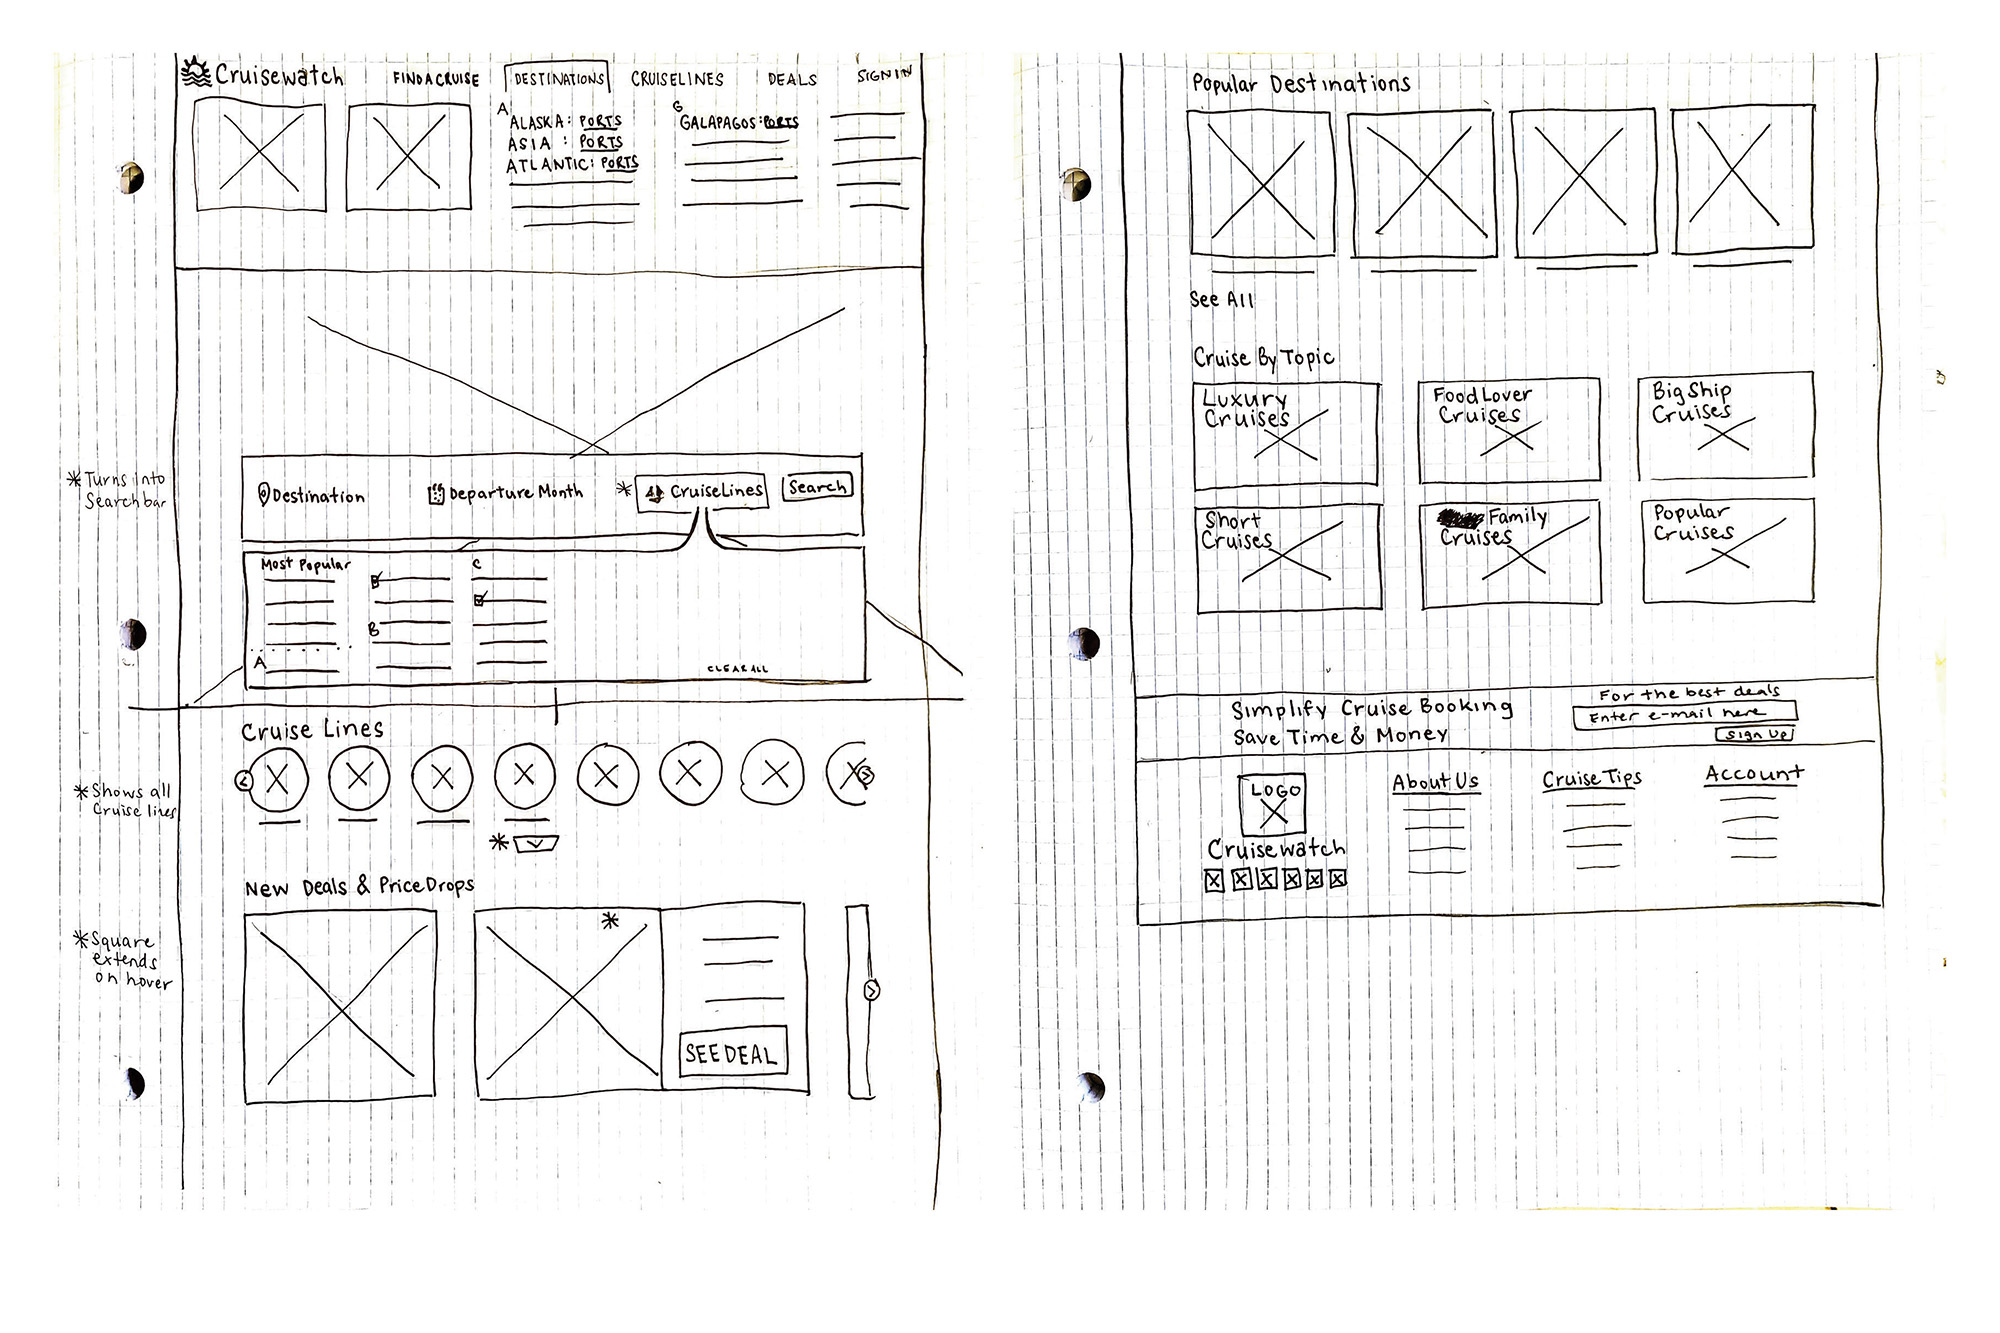 Cruisewatch FIND A CRUISE DESTINATIONS CRUISELINES DEALS SIGN IN
A G
ALASKA: PORTS GALAPAGOS: PORTS
ASIA : PORTS
ATLANTIC: PORTS
* Turns into
Search bar
Destination Departure Month * CruiseLines Search
Most Popular C
B
A
CLEAR ALL
Cruise Lines
* Shows all
Cruise lines
*
New Deals & Price Drops
*
* Square
extends
on hover
SEE DEAL
Popular Destinations
See All
Cruise By Topic
Luxury
Cruises
Food Lover
Cruises
Big Ship
Cruises
Short
Cruises
Family
Cruises
Popular
Cruises
Simplify Cruise Booking
Save Time & Money
For the best deals
Enter e-mail here
Sign Up
LOGO
Cruisewatch
About Us Cruise Tips Account